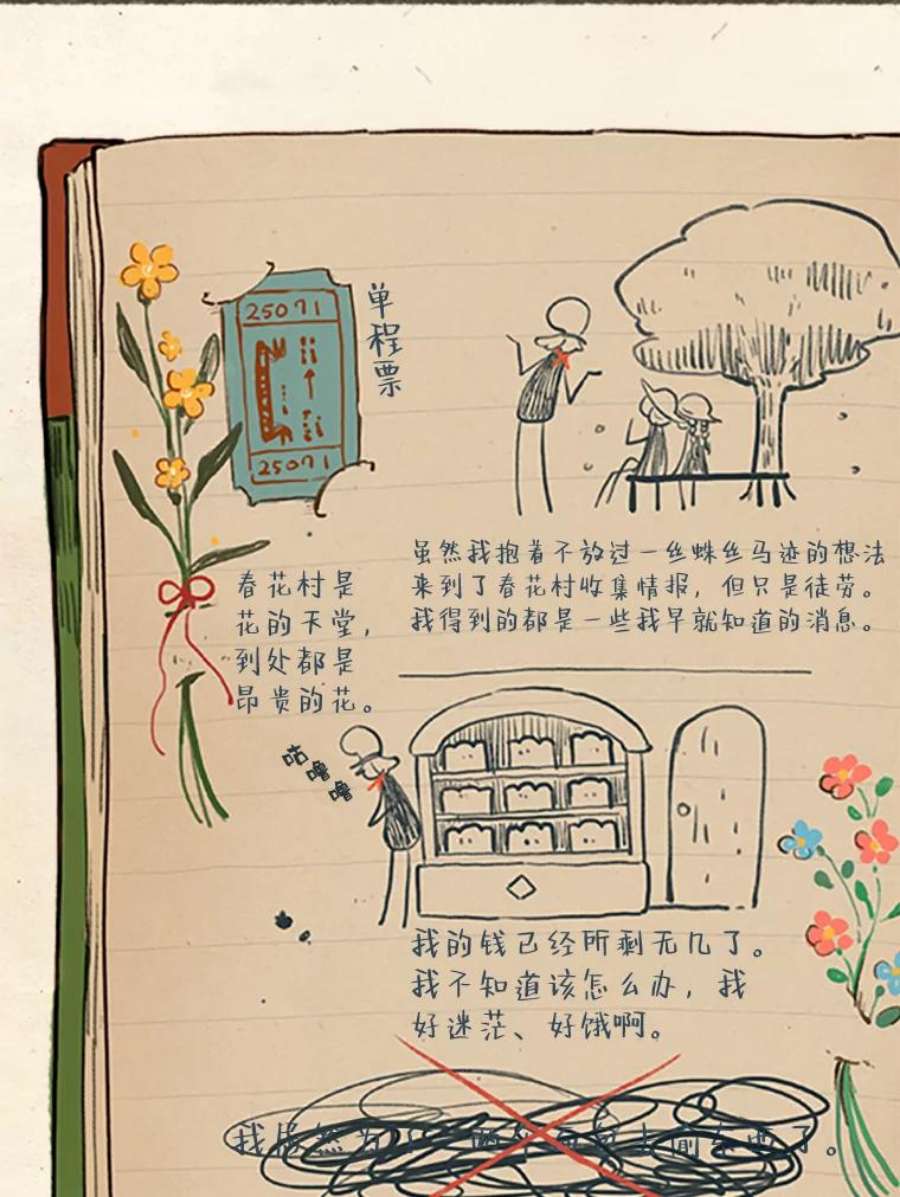 25071
25071
单程票
虽然我抱着不放过一丝蛛丝马迹的想法
来到了春花村收集情报，但只是徒劳。
我得到的都是一些我早就知道的消息。
春花村是
花的天堂，
到处都是
昂贵的花。
咕噜噜
我的钱已经所剩无几了。
我不知道该怎么办，我
好迷茫、好饿啊。
我居然为了
上偷东西了。